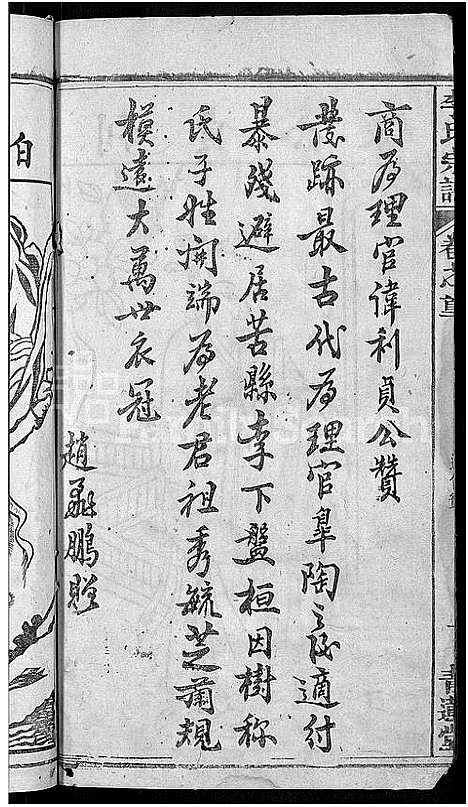 李氏宗譜
卷之首
青蓮堂
商為理官偉利貞公贊
發跡最古代為理官皋陶之後適付
暴殘避居苦縣李下盤桓因樹称
氏子姓開端為老君祖秀毓芝蘭規
模遠大萬世衣冠
趙鵬
白
FamilySearch